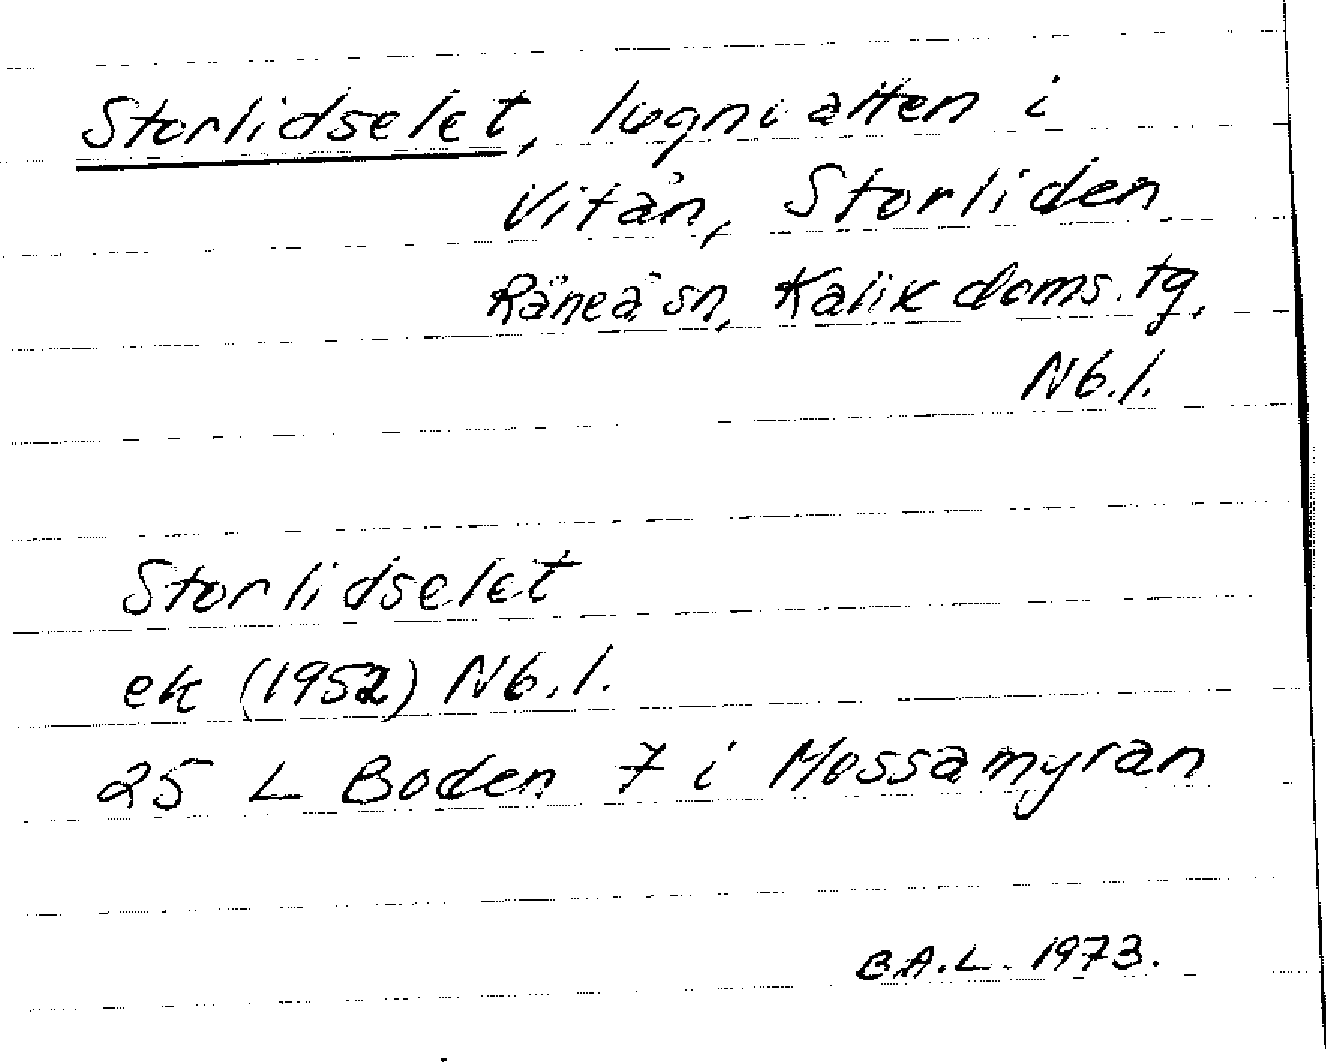 Storlidselet, lugnvatten i
Vitån, Storliden
Råneå sn, Kalix doms. tg,
Nb. l.
Storlidselet
ek (1952) Nb. l.
25 L Boden 7 i Mossamyran
B.A.L. 1973.